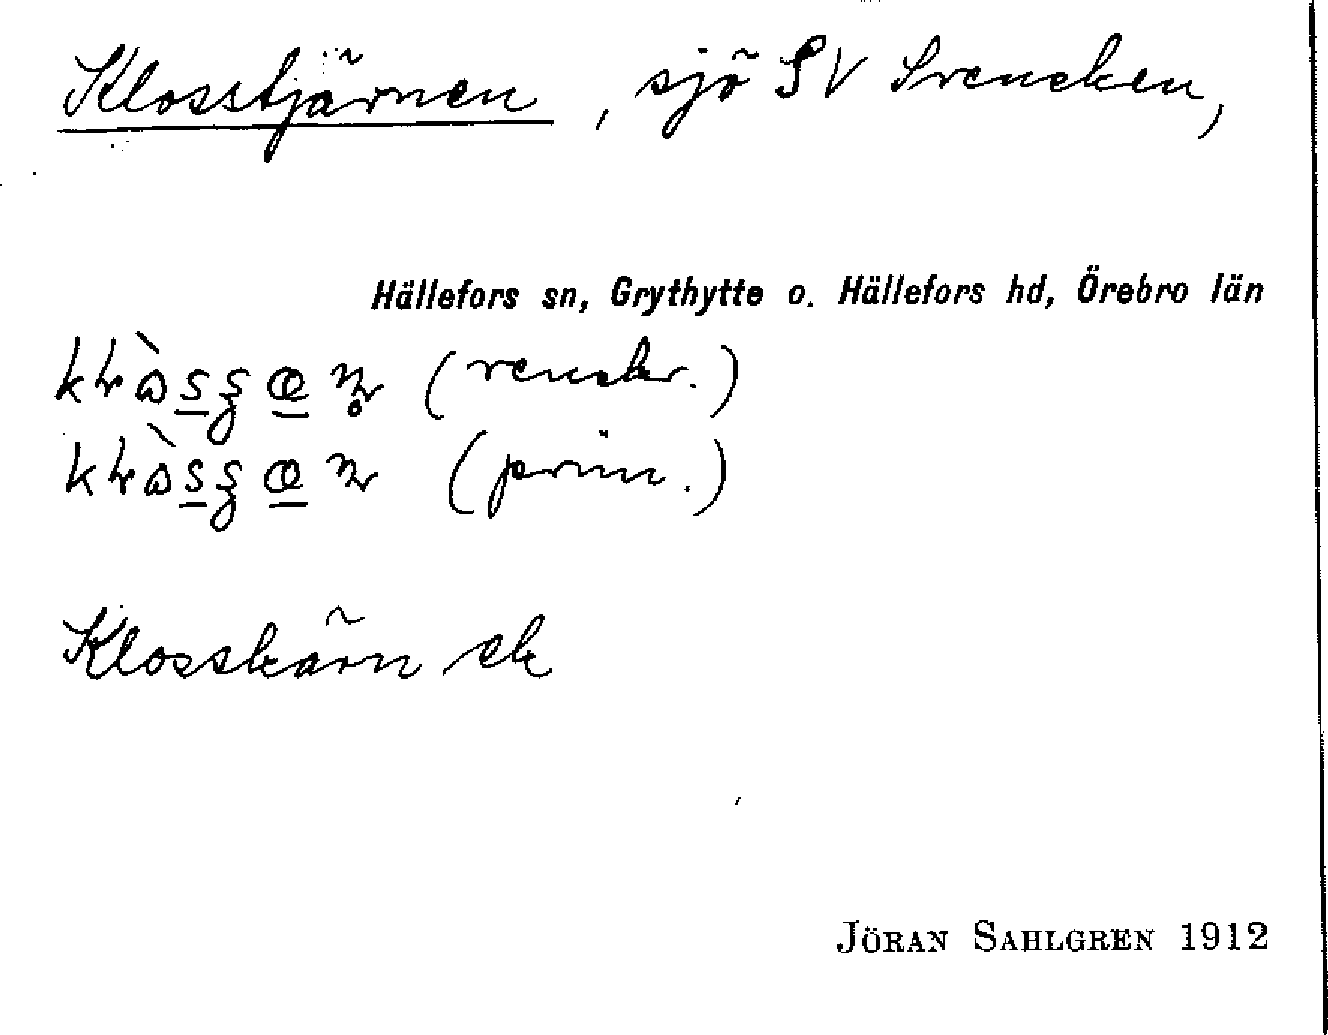 Klosstjärnen, sjö SV Svencken,
Hällefors sn, Grythytte o. Hällefors hd, Örebro län
(renskr.)
(prim.)
Klosskärn ek
JÖRAN SAHLGREN 1912